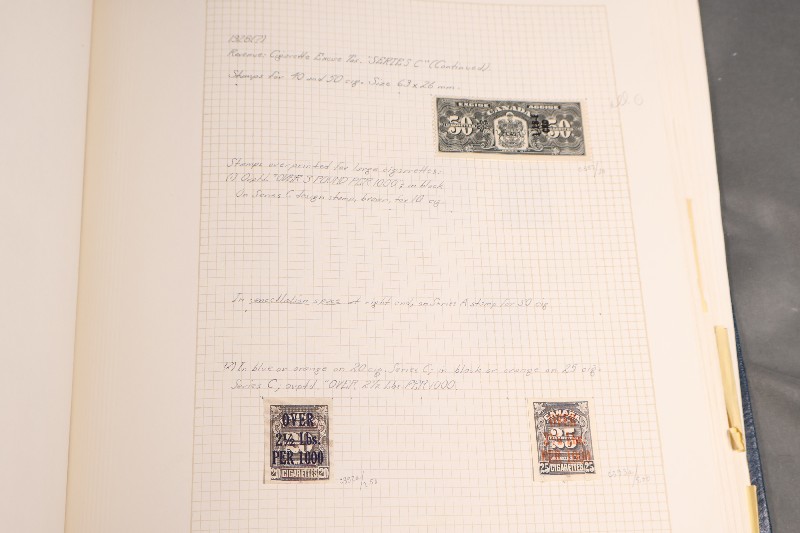 1928(?)
Revenue: Cigarette Excise Tax. "SERIES C" (Continued).
Stamps for 40 and 50 cig. Size 63 x 26 mm.
EXCISE CANADA ACCISE
50 50
Stamps overprinted for large cigarettes:
(1) Ovptd. "OVER 3 POUND PER 1000"; in black
On Series C design stamp, brown for 10 cig.
In cancellation at right end, on Series A stamp for 50 cig.
(2) In blue on orange on 20 cig. Series C, in black on orange on 25 cig.
Series C, ovptd. "OVER 2½ Lbs. PER 1000.
OVER
2½ Lbs.
PER 1000
CIGARETTES
CANADA
25
25 CIGARETTES 25